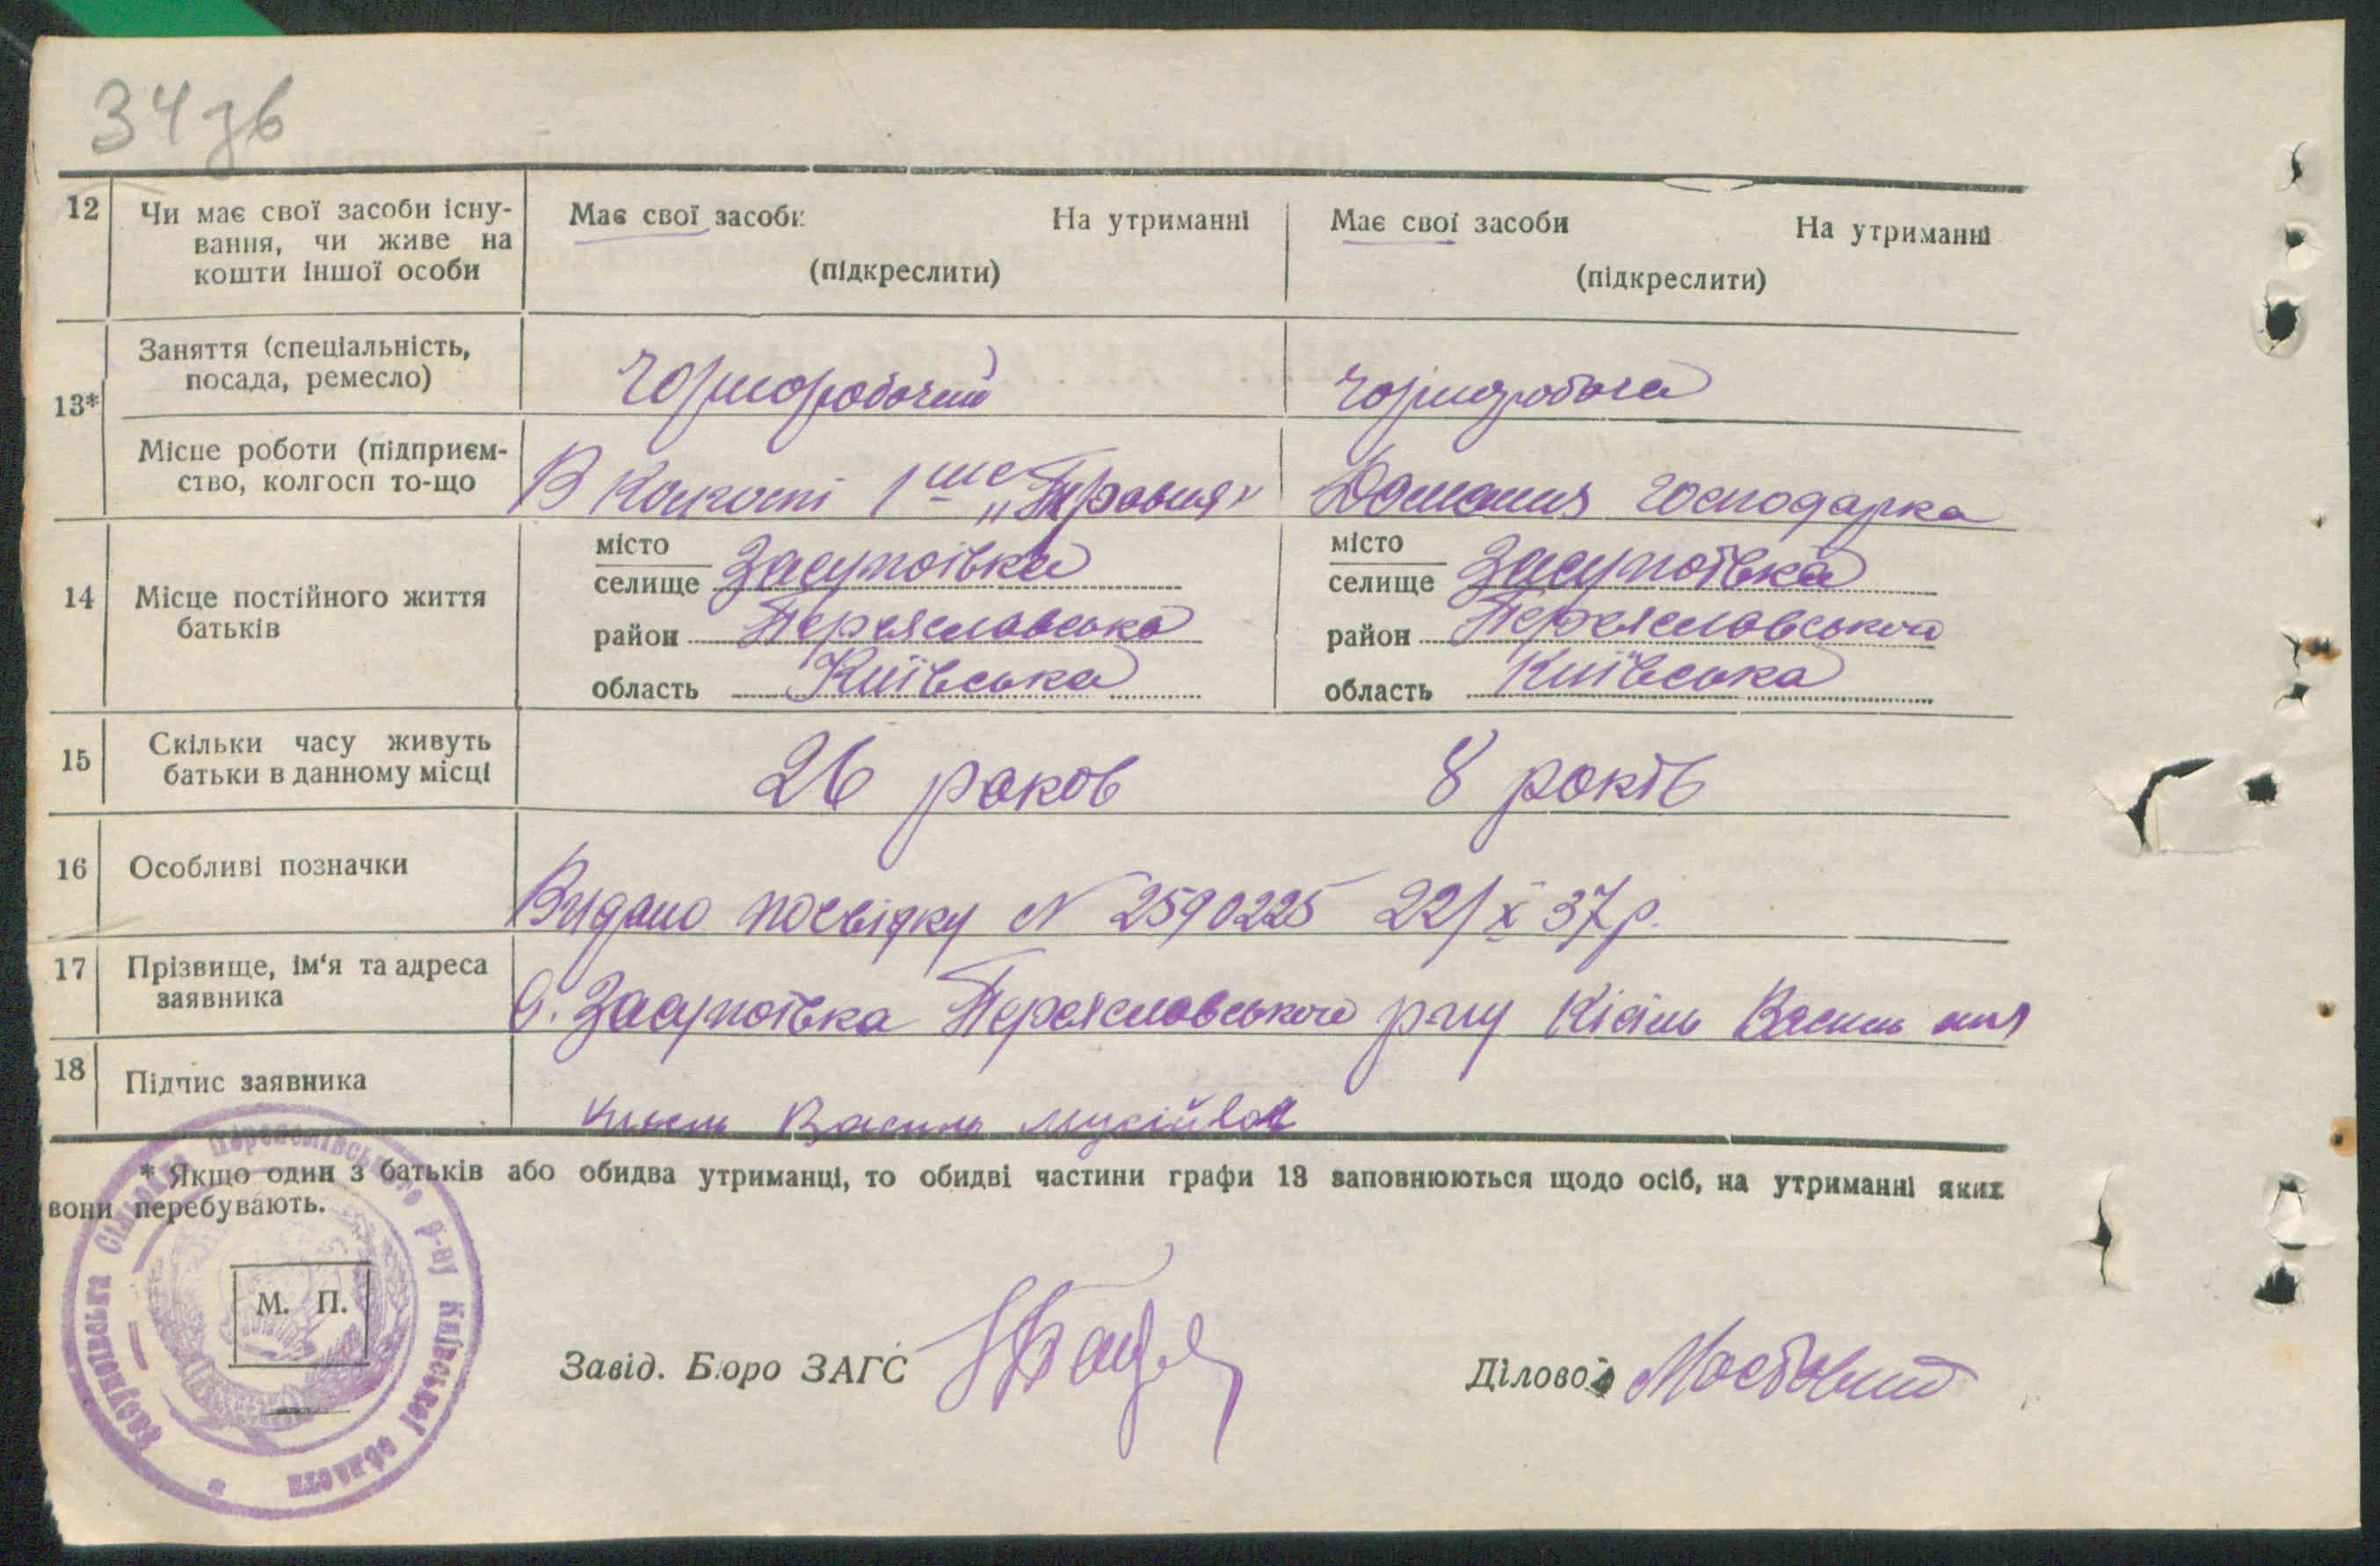 34зв
12 Чи має свої засоби існу-
вання, чи живе на
кошти іншої особи
Має свої засоби На утриманні
(підкреслити)
Має свої засоби На утриманні
(підкреслити)
13* Заняття (спеціальність,
посада, ремесло)
Чорноробочий
Чорноробоча
Місце роботи (підприєм-
ство, колгосп то-що
В колгоспі 1ше „Травня"
Домашня господарка
14 Місце постійного життя
батьків
місто
селище Засупоївка
район Переяславська
область Київська
місто
селище Засупоївка
район Переяславського
область Київська
15 Скільки часу живуть
батьки в данному місці
26 роков
8 років
16 Особливі позначки
Видано посвідку N 2590225 22/X 37р.
17 Прізвище, ім'я та адреса
заявника
С. Засупоївка Переяславського р-ну Кісіль Василь
18 Підпис заявника
Василь Мусійов
* Якщо один з батьків або обидва утриманці, то обидві частини графи 13 заповнюються щодо осіб, на утриманні яких
вони перебувають.
М. П.
Завід. Бюро ЗАГС
Діловод Мостовий
Засупоївська Сільрада р-ну Київської области